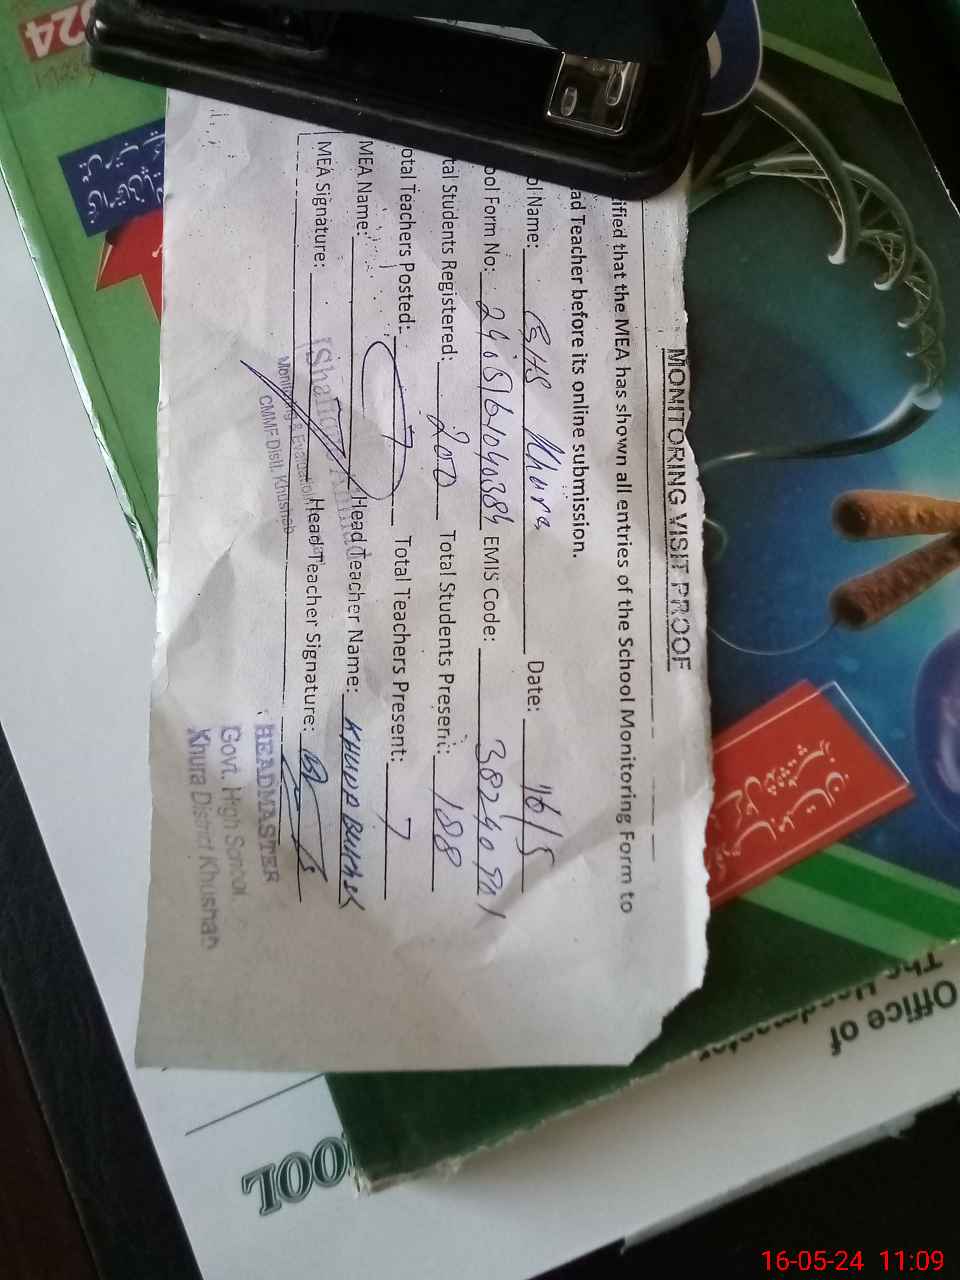 MONITORING VISIT PROOF
tified that the MEA has shown all entries of the School Monitoring Form to
ad Teacher before its online submission.
ol Name: GHS Khura Date: 16/5
ool Form No: EMIS Code:
tal Students Registered: 200 Total Students Present: 188
otal Teachers Posted: 7 Total Teachers Present: 7
MEA Name: Head Teacher Name:
MEA Signature: Head Teacher Signature:
Monitoring & Evaluation
CMMF Distt. Khushab
HEADMASTER
Govt. High School
Khura District Khushab
Office of
The Headmaster
OOL
24
16-05-24 11:09